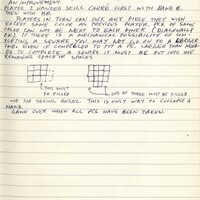 AN IMPROVEMENT.
PLAYED 2 HANDED SKILL CARRÉ FIRST WITH
THEN WITH
PLAYERS IN TURN CAN PICK ANY PIECE THEY WISH
EXCEPT SAME COLOR AS PREVIOUS PLAYER. PCS OF SAME
COLOR CAN NOT BE NEXT TO EACH OTHER (DIAGONALLY
OK). IF THERE IS A MECHANICAL POSSIBILITY OF
A SQUARE YOU MAY NOT GO ON TO A LARGER
ONE. EVEN IF COMPELLED TO PUT A PC. LARGER THAN
TO COMPLETE A SQUARE IT MUST BE PUT INTO THE
REMAINING SPACE OR SPACES
THIS MUST
BE FILLED
ONE OF THESE MUST BE FILLED
OR THE TAKING ANGLE. THIS IS ONLY WAY TO COLLAPSE A
GAME OVER WHEN ALL PCS HAVE BEEN TAKEN.